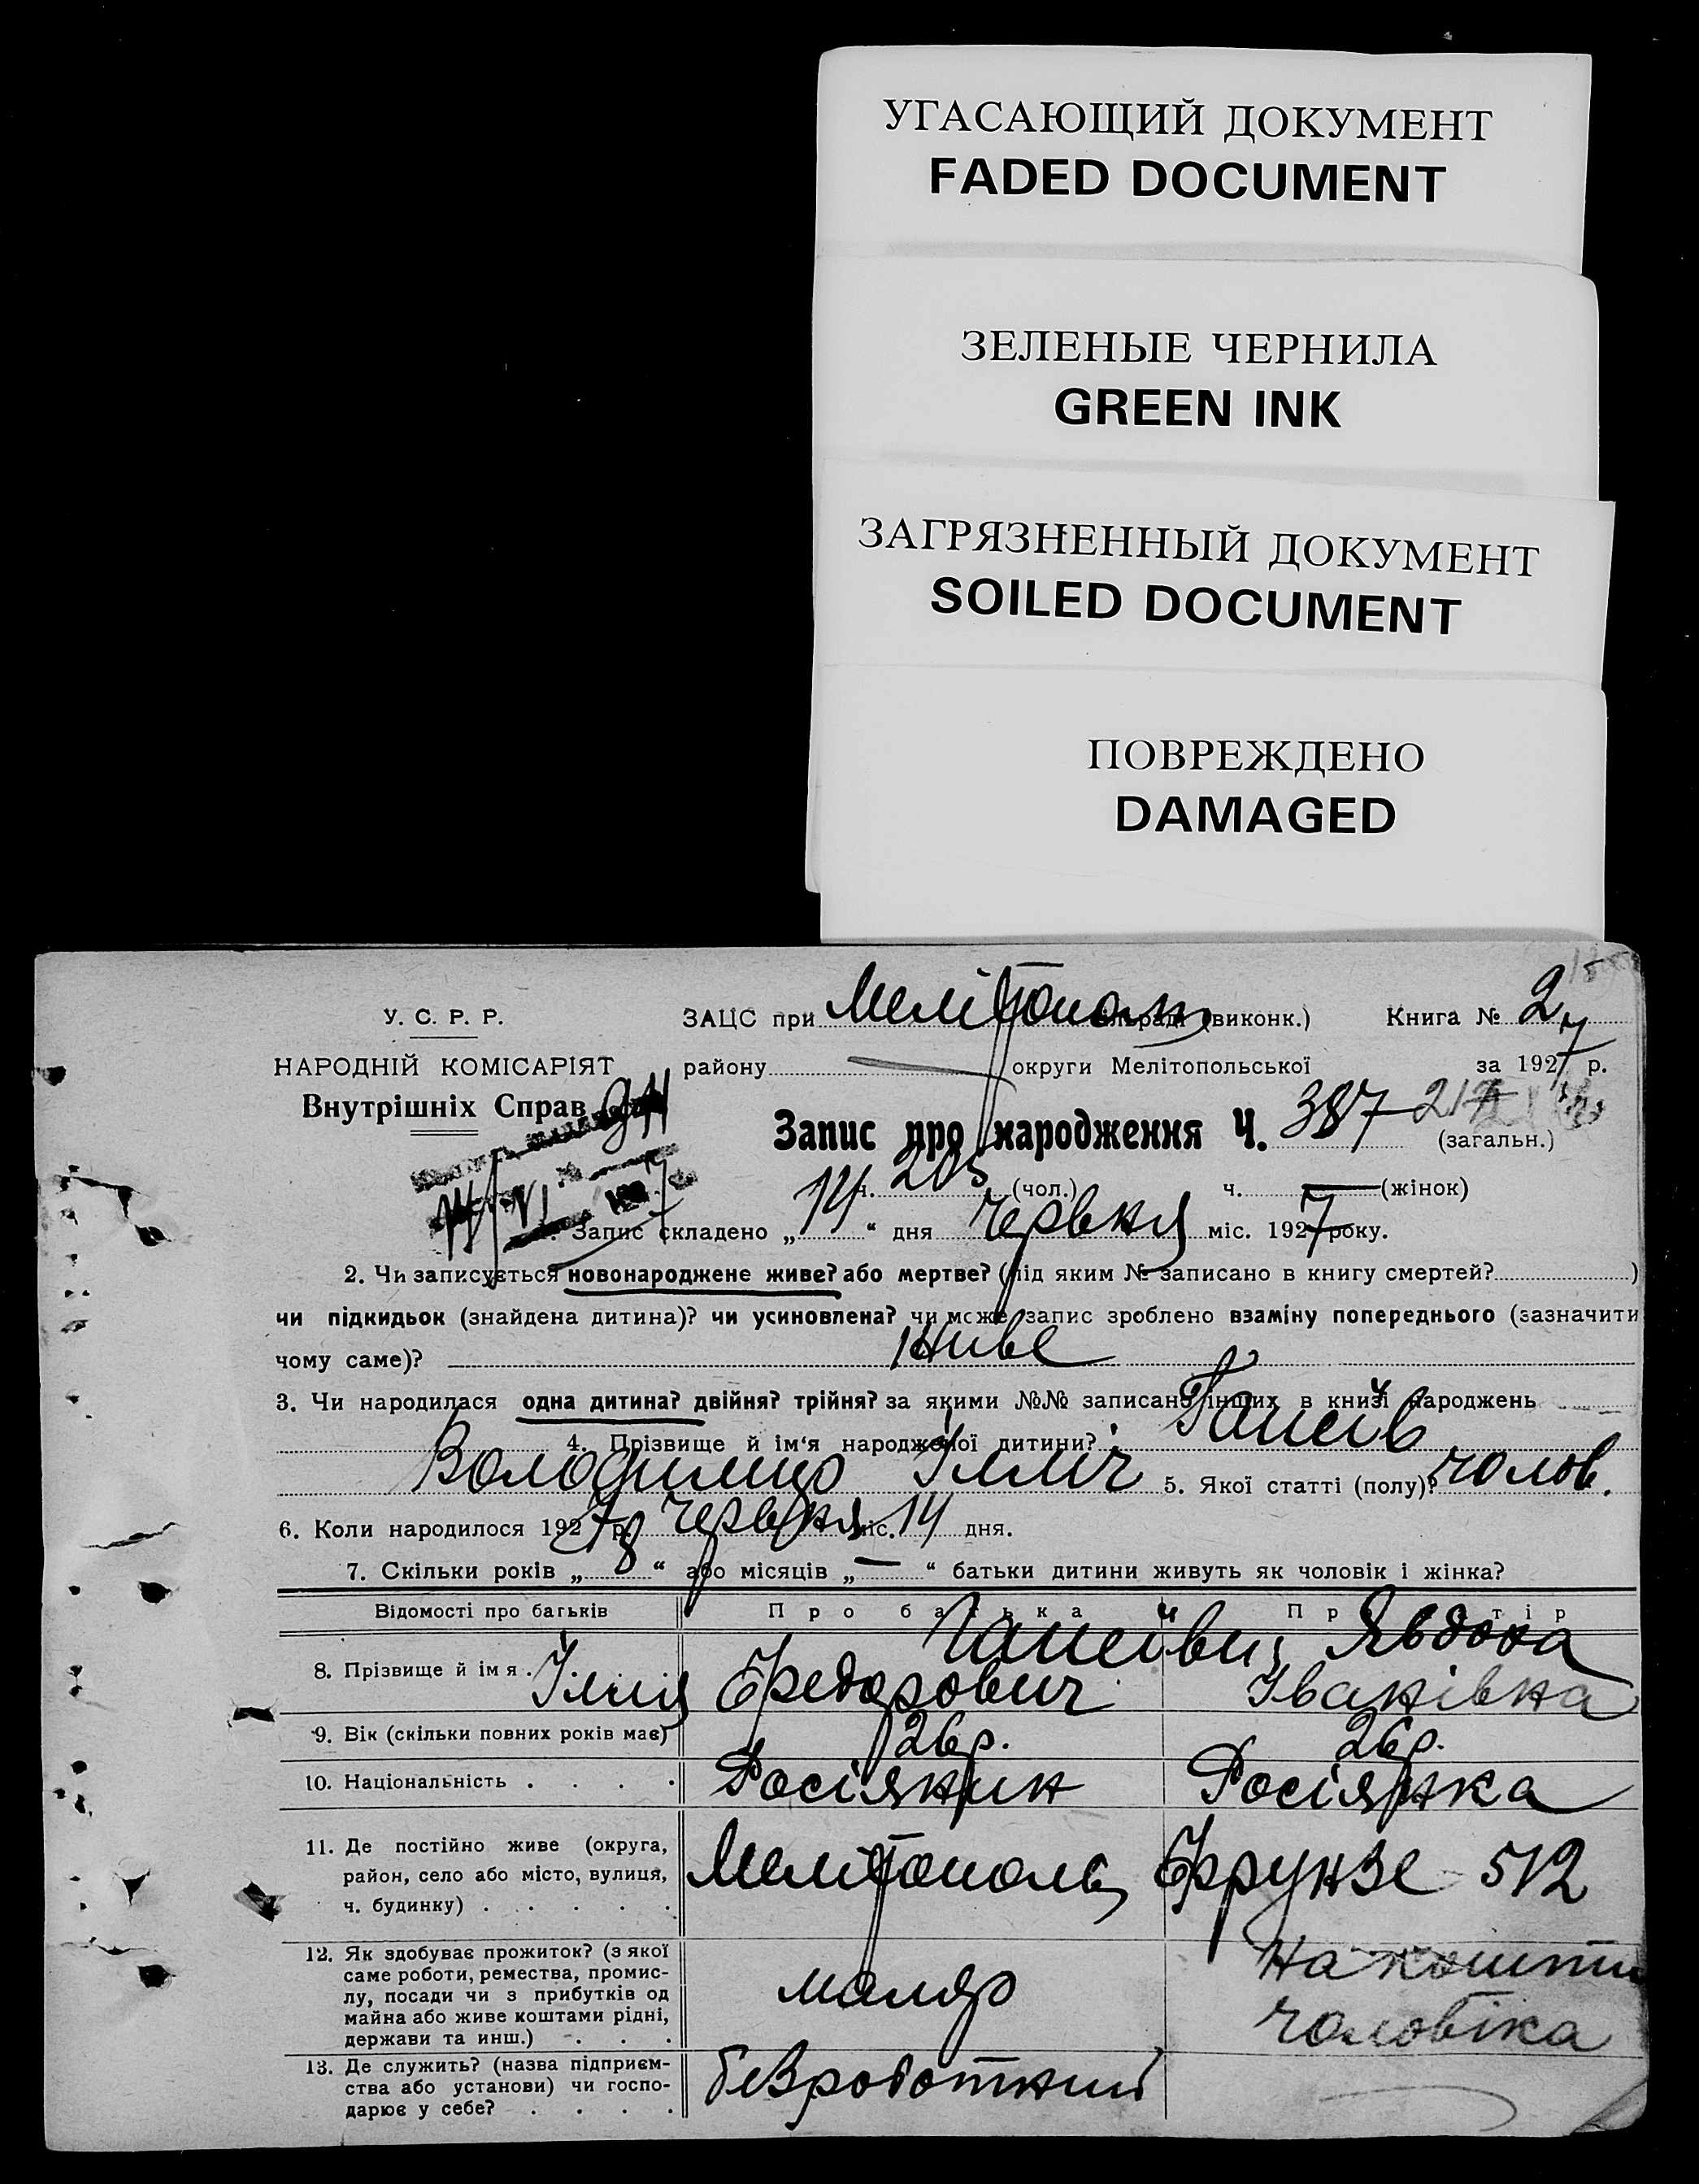 УГАСАЮЩИЙ ДОКУМЕНТ
FADED DOCUMENT
ЗЕЛЕНЫЕ ЧЕРНИЛА
GREEN INK
ЗАГРЯЗНЕННЫЙ ДОКУМЕНТ
SOILED DOCUMENT
ПОВРЕЖДЕНО
DAMAGED
У. С. Р. Р. ЗАЦС при Меліtополь (виконк.) Книга № 2
НАРОДНІЙ КОМІСАРІЯТ району округи Мелітопольської за 1927 р.
Внутрішніх Справ
Запис про народження Ч. 387 (загальн.)
ч. 205 (чол.) ч. — (жінок)
Запис складено „ 14 “ дня червня міс. 1927 року.
2. Чи записується новонароджене живе? або мертве? (під яким № записано в книгу смертей? )
чи підкидьок (знайдена дитина)? чи усиновлена? чи може запис зроблено взаміну попереднього (зазначити
чому саме)? живе
3. Чи народилася одна дитина? двійня? трійня? за якими №№ записано інших в книзі народжень
4. Прізвище й ім‘я народженої дитини?
Володимир Ілліч 5. Якої статті (полу)? чолов.
6. Коли народилося 1927 р. червня міс. 14 дня.
7. Скільки років „ 8 “ або місяців „ — “ батьки дитини живуть як чоловік і жінка?
Відомості про батьків Про батька
8. Прізвище й імя . Ілля Федорович Явдоха Іванівна
9. Вік (скільки повних років має) 26 р. 26 р.
10. Національність . . . . Росіянин Росіянка
11. Де постійно живе (округа,
район, село або місто, вулиця,
ч. будинку) . . . . . Мелітополь, Фрунзе 512
12. Як здобуває прожиток? (з якої
саме роботи, ремества, промис-
лу, посади чи з прибутків од
майна або живе коштами рідні,
держави та инш.) . . . маляр На кошти чоловіка
13. Де служить? (назва підприєм-
ства або установи) чи госпо-
дарює у себе? . . . . безроботний